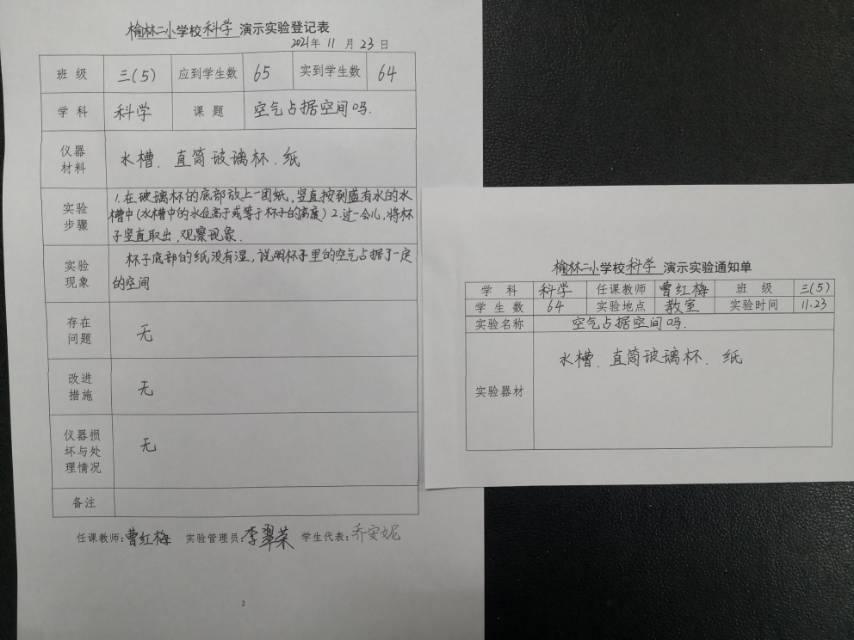 榆林二小学校科学演示实验登记表
2021年11月23日
班级 三(5) 应到学生数 65 实到学生数 64
学科 科学 课题 空气占据空间吗.
仪器材料 水槽、直筒玻璃杯、纸
实验步骤 1.在玻璃杯的底部放上一团纸,竖直按到盛有水的水
槽中(水槽中的水位高于或等于杯子的高度)2.过一会儿,将杯
子竖直取出,观察现象.
实验现象 杯子底部的纸没有湿,说明杯子里的空气占据了一定
的空间
存在问题 无
改进措施 无
仪器损坏与处理情况 无
备注
任课教师:曹红梅 实验管理员:李翠荣 学生代表:乔安妮
2
榆林二小学校科学演示实验通知单
学科 科学 任课教师 曹红梅 班级 三(5)
学生数 64 实验地点 教室 实验时间 11.23
实验名称 空气占据空间吗.
实验器材 水槽、直筒玻璃杯、纸